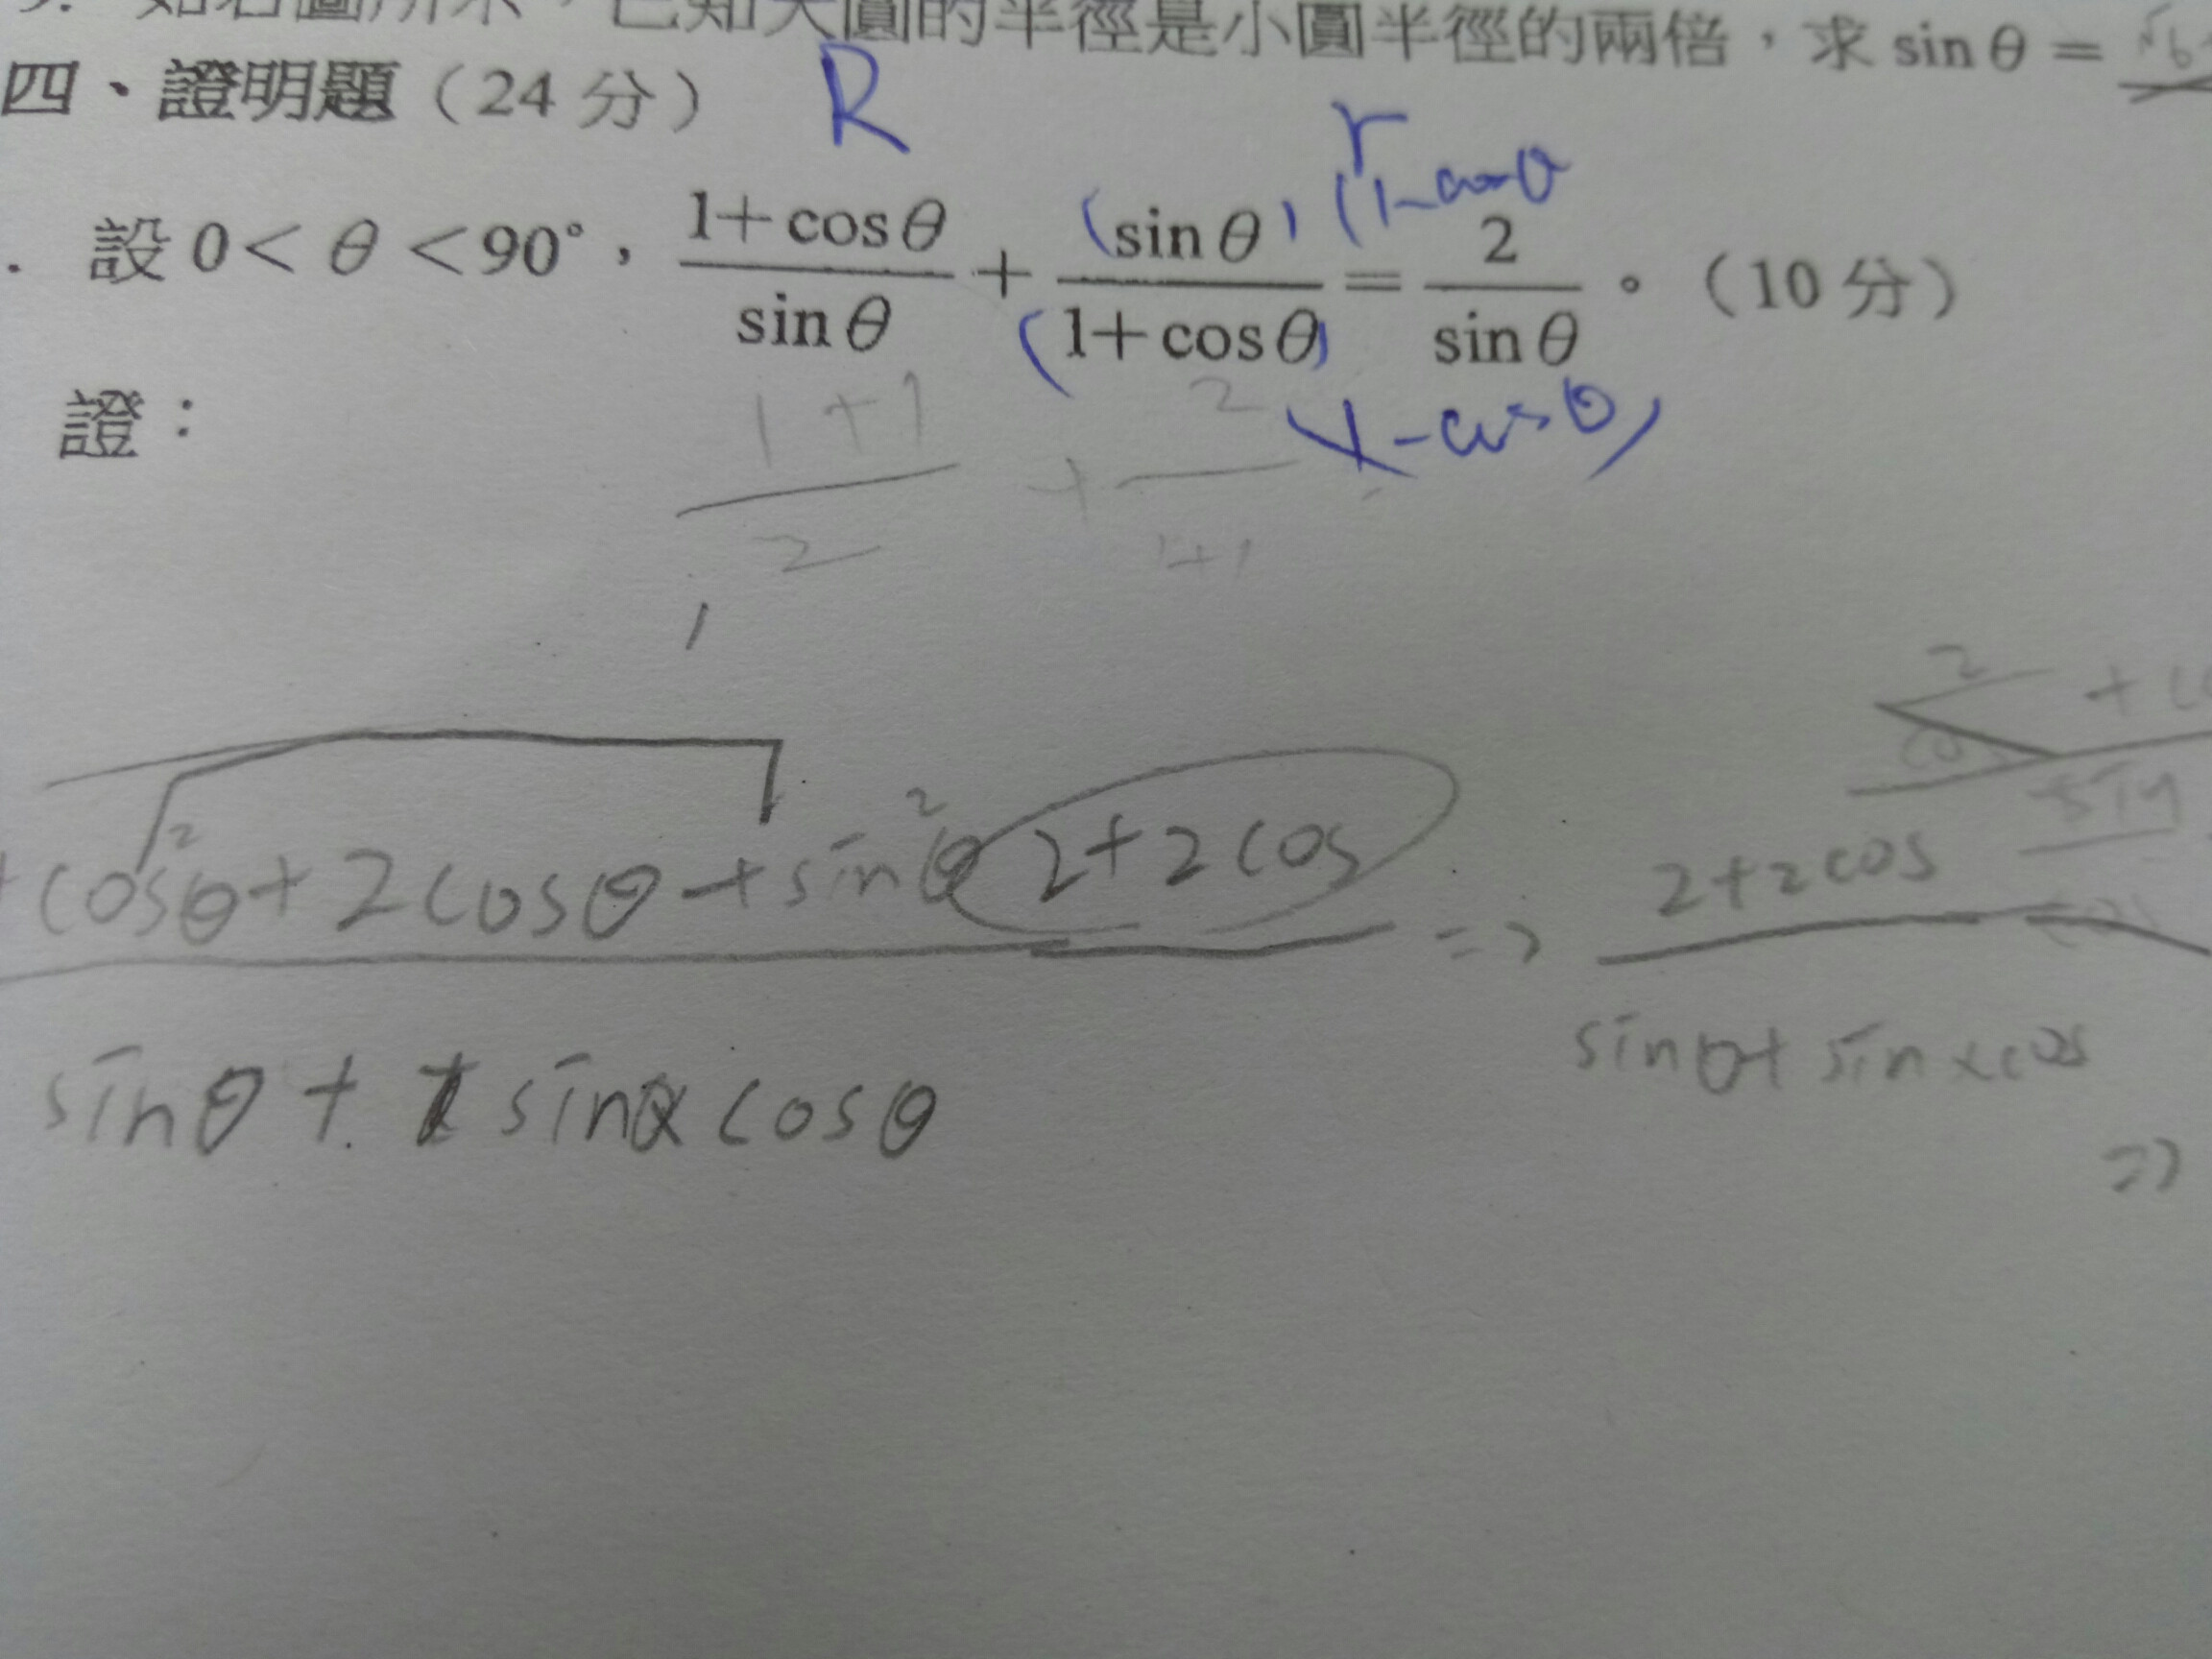 如右圖所示，已知大圓的半徑是小圓半徑的兩倍，求 sin θ =
四、證明題（24 分）
R
r
(1-cosθ
. 設 0 < θ < 90°，(1+cosθ)/(sinθ) + (sinθ)/(1+cosθ) = 2/(sinθ) 。（10 分）
(1-cosθ)
證：
1+1 2
+
2 1+1
2
cos²θ + 2cosθ + sin²θ 2+2cos
sinθ + sinθ×cosθ
=> 2+2cos
sinθ + sin×cos
=>